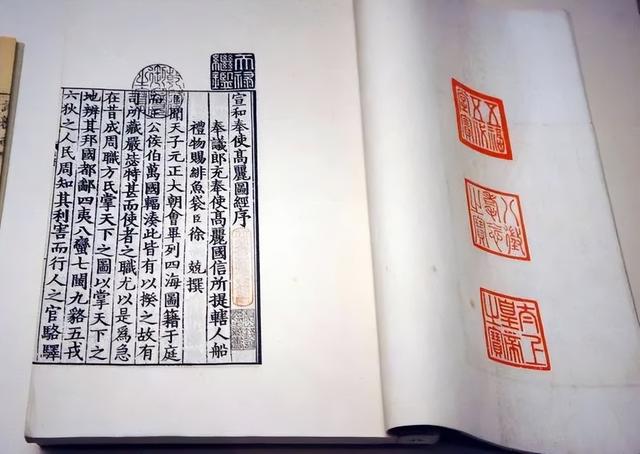 五福五代堂寶
八徵耄念之寶
太上皇帝之寶
天祿繼鑑
宣和奉使高麗圖經序
奉議郎充奉使高麗國信所提轄人船
禮物賜緋魚袋臣徐 兢撰
聞天子元正大朝會畢列四海圖籍于庭
而王公侯伯萬國輻湊此皆有以揆之故有
司所藏嚴毖特甚而使者之職尤以是爲急
在昔成周職方氏掌天下之圖以掌天下之
地辨其邦國都鄙四夷八蠻七閩九貉五戎
六狄之人民周知其利害而行人之官駱驛